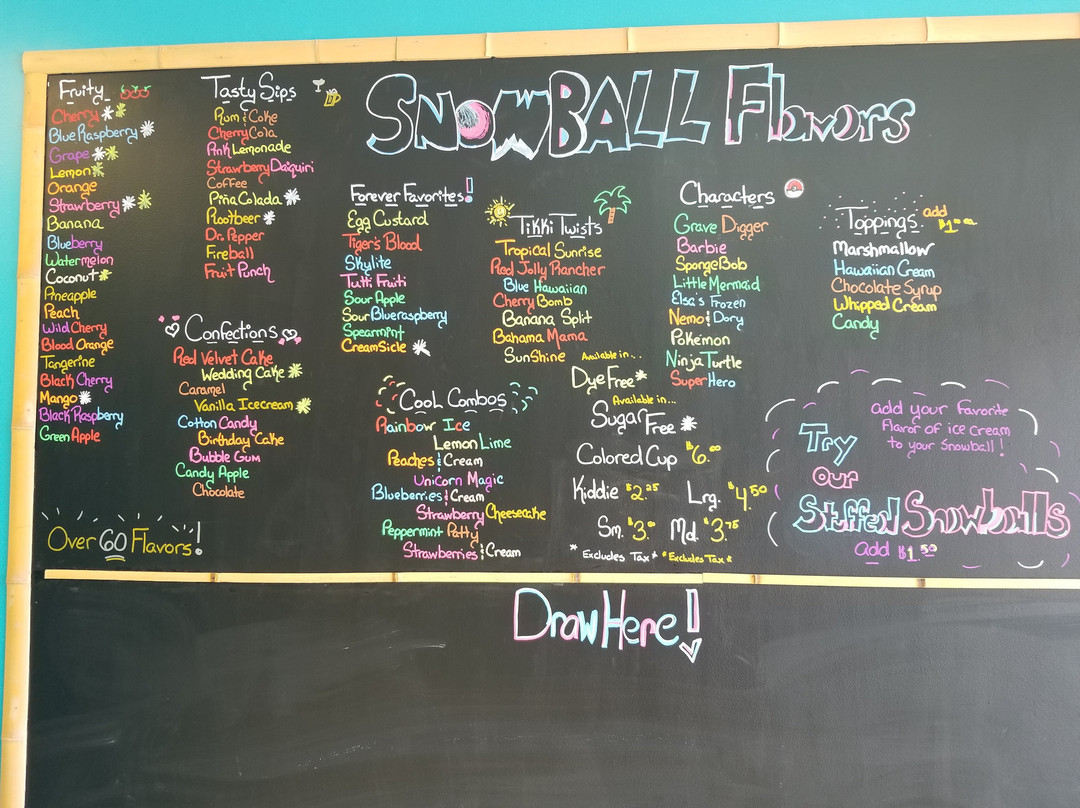 SNOWBALL Flavors
Fruity
Cherry **
Blue Raspberry *
Grape **
Lemon *
Orange
Strawberry **
Banana
Blueberry
Watermelon
Coconut *
Pineapple
Peach
Wild Cherry
Blood Orange
Tangerine
Black Cherry
Mango *
Black Raspberry
Green Apple
Over 60 Flavors!
Tasty Sips
Rum & Coke
Cherry Cola
Pink Lemonade
Strawberry Daiquiri
Coffee
Piña Colada *
Rootbeer *
Dr. Pepper
Fireball
Fruit Punch
Confections
Red Velvet Cake
Wedding Cake *
Caramel
Vanilla Icecream *
Cotton Candy
Birthday Cake
Bubble Gum
Candy Apple
Chocolate
Forever Favorites!
Egg Custard
Tiger's Blood
Skylite
Tutti Fruiti
Sour Apple
Sour Blueraspberry
Spearmint
CreamSicle *
Cool Combos
Rainbow Ice
Lemon Lime
Peaches & Cream
Unicorn Magic
Blueberries & Cream
Strawberry Cheesecake
Peppermint Patty
Strawberries & Cream
Tikki Twists
Tropical Sunrise
Red Jolly Rancher
Blue Hawaiian
Cherry Bomb
Banana Split
Bahama Mama
SunShine
Available in...
Dye Free *
Available in...
Sugar Free *
Colored Cup $6.00
Kiddie $2.25 Lrg. $4.50
Sm. $3.00 Md. $3.75
* Excludes Tax * * Excludes Tax *
Characters
Grave Digger
Barbie
SpongeBob
Little Mermaid
Elsa's Frozen
Nemo & Dory
Pokémon
Ninja Turtle
Super Hero
Toppings add $1.00
Marshmallow
Hawaiian Cream
Chocolate Syrup
Whipped Cream
Candy
Try
our
Stuffed Snowballs
add $1.50
add your favorite
flavor of ice cream
to your snowball!
Draw Here!